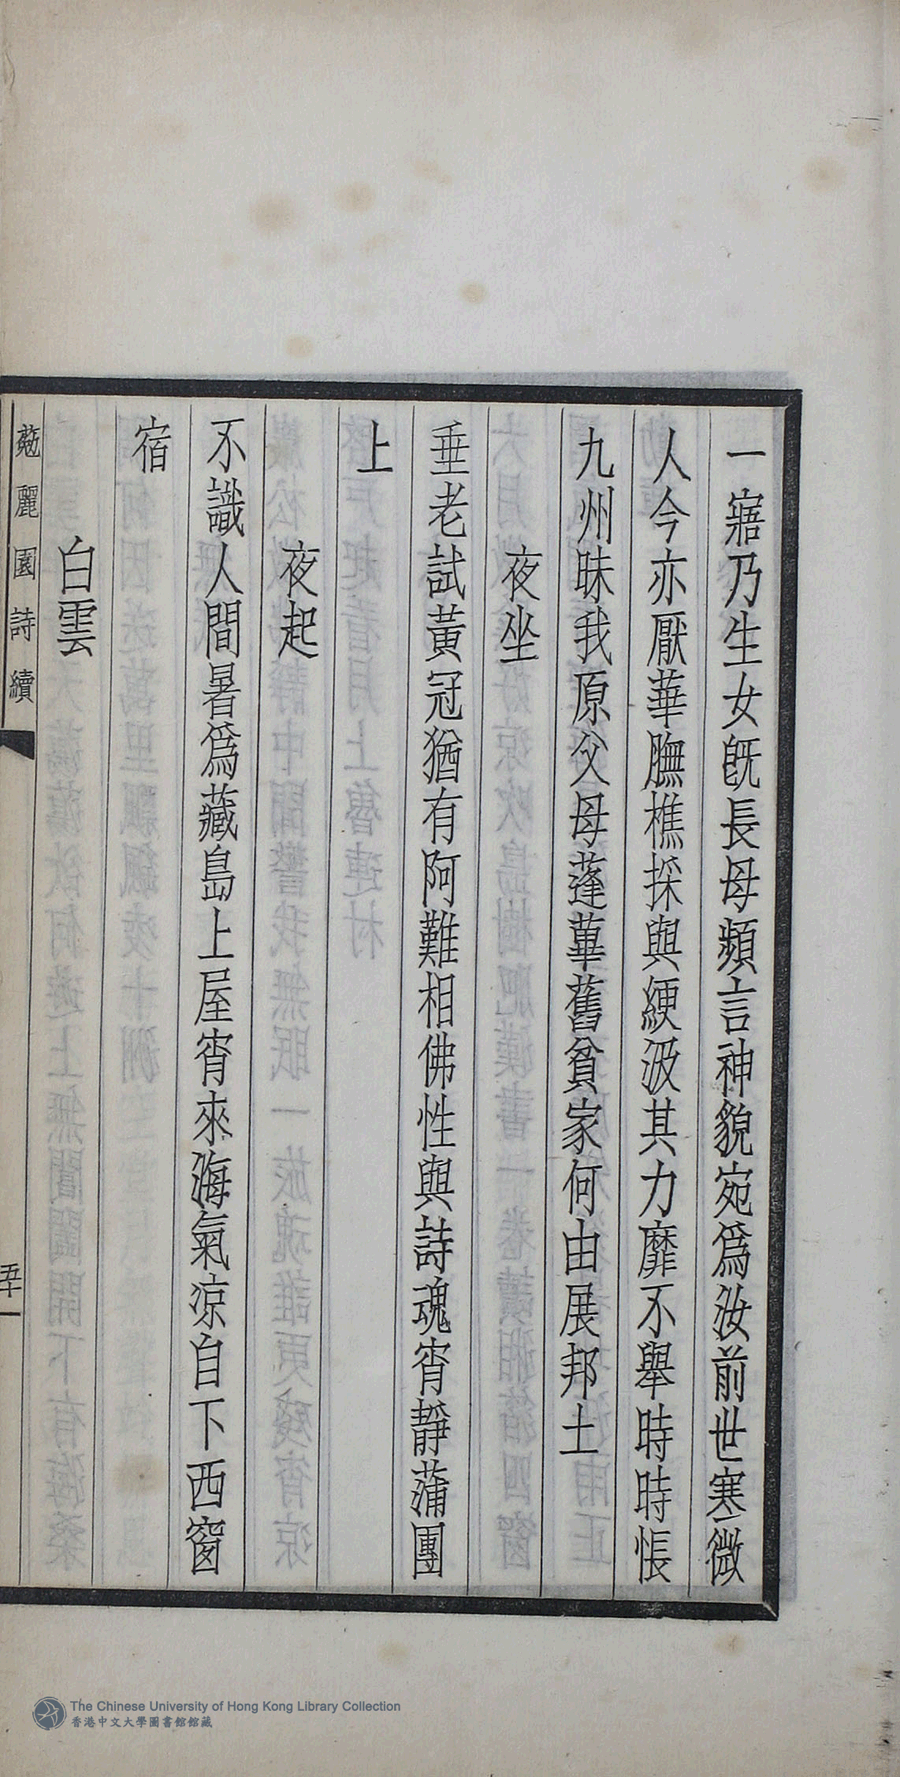 一寤乃生女旣長母頻言神貌宛爲汝前世寒微
人今亦厭華膴樵採與綆汲其力靡不舉時時悵
九州昧我原父母蓬蓽舊貧家何由展邦土
夜坐
垂老試黃冠猶有阿難相佛性與詩魂宵靜蒲團
上
夜起
不識人間暑爲藏島上屋宵來海氣涼自下西窗
宿
白雲
麗園詩續
五十一
The Chinese University of Hong Kong Library Collection
香港中文大學圖書館館藏